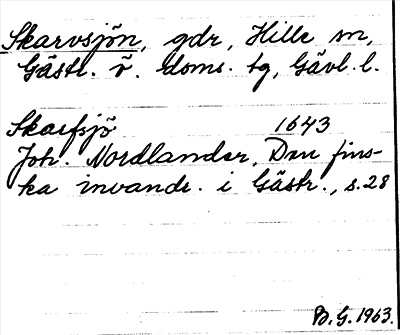 Skarvsjön, gdr, Hille sn,
Gästr. ö. doms. tg, Gävl. l.
Skarfsjö 1643
Joh. Nordlander, Den fins-
ka invandr. i Gästr., s. 28
B.G. 1963.